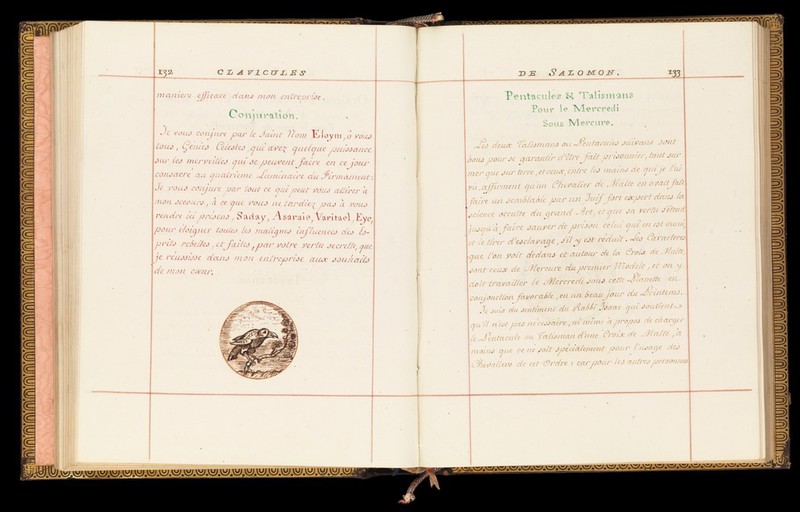 132 CLAVICULES
maniere efficace dans mon entreprise.
Conjuration.
Je vous conjure par le Saint Nom Eloym, ô vous
tous, Genies Celestes, qui avez quelque puissance
sur les merveilles qui se peuvent faire en ce jour
consacré au quatrième Luminaire du Firmament:
Je vous conjure par tout ce qui peut vous attirer à
mon secours, à ce que vous ne tardiez pas à vous
rendre ici présens, Saday, Asaraie, Varitael, Eye,
pour éloigner toutes les malignes influences des Es-
prits rebelles, et faites, par votre vertu secrette, que
je réussisse dans mon entreprise aux souhaits
de mon cœur.
DE SALOMON. 133
Pentacules & Talismans
Pour le Mercredi
Sous Mercure.
Les deux Talismans ou Pentacules suivans sont
bons pour se garantir d'être fait prisonnier, tant sur
mer que sur terre, et ceux entre les mains de qui je l'ai
vû, affirment qu'un Chevalier de Malte en avait fait
faire un semblable par un Juif fort expert dans la
science occulte du grand Art, et que sa vertu s'étend
jusqu'à faire sauver de prison celui qui en est muni,
et le tirer d'esclavage, s'il y est réduit. Les Caracteres
que l'on voit dedans et autour de la Croix de Malte,
sont ceux de Mercure du premier Modele, et on y
doit travailler le Mercredi sous cette Planette en
conjonction favorable, en un beau jour du Printems.
Je suis du sentiment du Rabbi Isaac qui soutient
qu'il n'est pas nécessaire, ni même à propos de charger
le Pentacule ou Talisman d'une Croix de Malte, à
moins que ce ne soit spécialement pour l'usage des
Chevaliers de cet Ordre; car pour les autres personnes